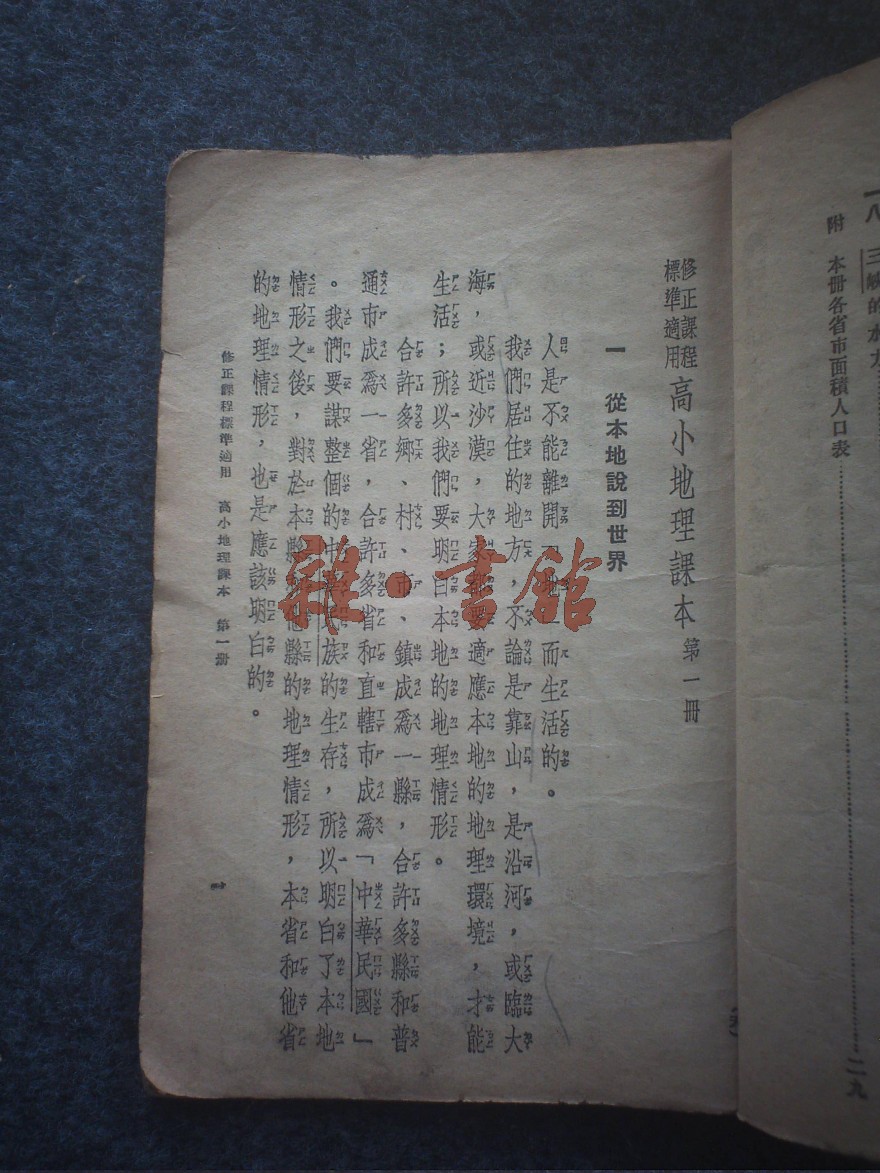 一八　三峽的水力
附　本冊各省市面積人口表……二九
修正課程標準適用　高小地理課本　第一冊
一　從本地說到世界
人是不能離開「地」而生活的。
我們居住的地方，不論是靠山，是沿河，或臨大
海，或近沙漠，大家都要適應本地的地理環境，才能
生活；所以我們要明白本地的地理情形。
合許多鄉、村、市、鎮成爲一縣，合許多縣和普
通市成爲一省，合許多省和直轄市成爲「中華民國」
。我們要謀整個的中華民族的生存，所以明白了本地
情形之後，對於本縣和他縣的地理情形，本省和他省
的地理情形，也是應該明白的。
修正課程標準適用　高小地理課本　第一冊
一
雜·書館